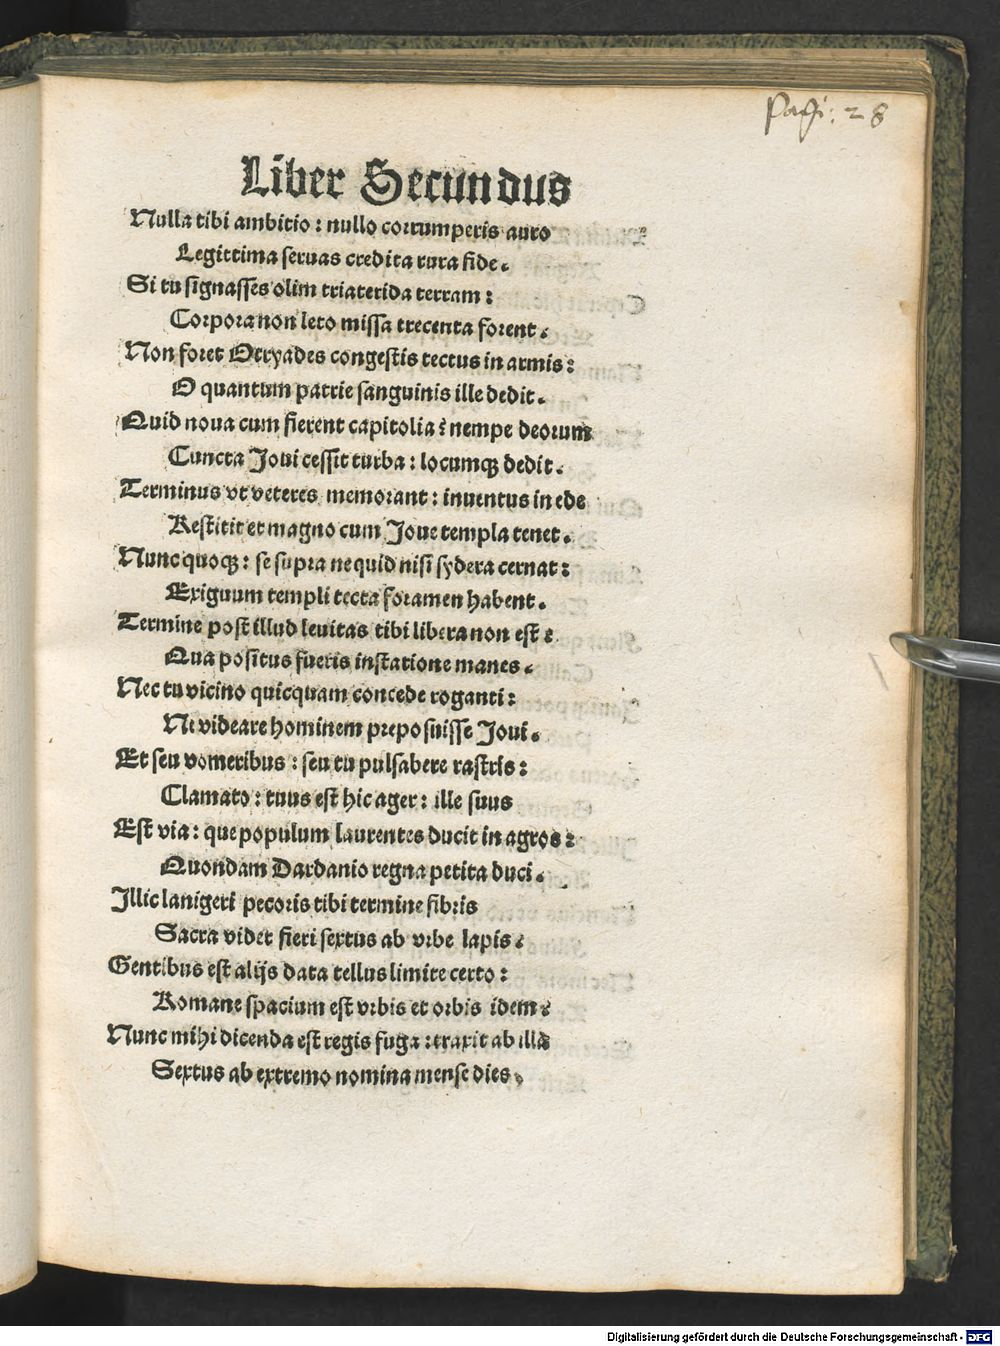 Pagi: 28
Liber Secundus
Nulla tibi ambitio : nullo corrumperis auro
Legittima seruas credita rura fide.
Si tu signasses olim triaterida terram :
Corpora non leto missa trecenta forent.
Non foret Otryades congestis tectus in armis :
O quantum patrie sanguinis ille dedit.
Quid noua cum fierent capitolia? nempe deorum
Cuncta Joui cessit turba : locumqꝫ dedit.
Terminus vt veteres memorant : inuentus in ede
Restitit et magno cum Joue templa tenet.
Nunc quoqꝫ : se supra ne quid nisi sydera cernat :
Exiguum templi tecta foramen habent.
Termine post illud leuitas tibi libera non est?
Qua positus fueris in statione manes.
Nec tu vicino quicquam concede roganti :
Ni videare hominem preposuisse Joui.
Et seu vomeribus : seu tu pulsabere rastris :
Clamato : tuus est hic ager : ille suus
Est via : que populum laurentes ducit in agros :
Quondam Dardanio regna petita duci.
Illic lanigeri pecoris tibi termine fibris
Sacra videt fieri sextus ab vrbe lapis?
Gentibus est alijs data tellus limite certo :
Romane spacium est vrbis et orbis idem?
Nunc mihi dicenda est regis fuga : traxit ab illa
Sextus ab extremo nomina mense dies.
Digitalisierung gefördert durch die Deutsche Forschungsgemeinschaft - DFG